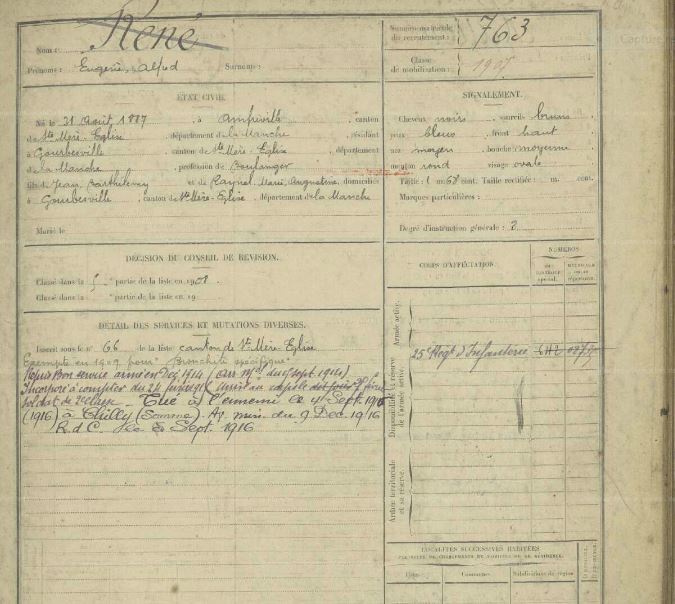 Nom : René
Prénoms : Eugène, Alfred Surnoms :
Numéro matricule du recrutement : 763
Classe de mobilisation : 1907
ÉTAT CIVIL.
Né le 31 Août 1887, à Amfreville, canton
de Ste Mère-Eglise, département de la Manche, résidant
à Gourbesville, canton de Ste Mère-Eglise, département
de la Manche, profession de Boulanger
fils de Jean, Barthélemy et de Raynel, Marie, Augustine, domiciliés
à Gourbesville, canton de Ste Mère-Eglise, département de la Manche
Marié le
SIGNALEMENT.
Cheveux noirs, sourcils bruns
yeux bleus, front haut
nez moyen, bouche moyenne
menton rond visage ovale
Taille : 1 m. 68 cent. Taille rectifiée : m. cent.
Marques particulières :
Degré d'instruction générale : 3
DÉCISION DU CONSEIL DE RÉVISION.
Classé dans la partie de la liste en 1908.
Classé dans la partie de la liste en 19
DÉTAIL DES SERVICES ET MUTATIONS DIVERSES.
Inscrit sous le n° 66 de la liste canton de Ste Mère-Eglise
Exempté en 1909 pour "Bronchite spécifique"
bon service armé en 1914 (sept. 1914)
Incorporé à compter du
soldat de 2e classe. Tué à l'ennemi le 4 Sept. 1916
(1916) à Chilly (Somme). Av. min. du 9 Dec. 1916
R. d. C. Sept. 1916
CORPS D'AFFECTATION.
NUMÉROS
25e Régt d'Infanterie
Armée active.
Disponibilité et réserve de l'armée active.
Armée territoriale et sa réserve.
LOCALITÉS SUCCESSIVES HABITÉES
PAR SUITE DE CHANGEMENTS DE DOMICILE OU DE RÉSIDENCE.
Dates. Communes. Subdivisions de région